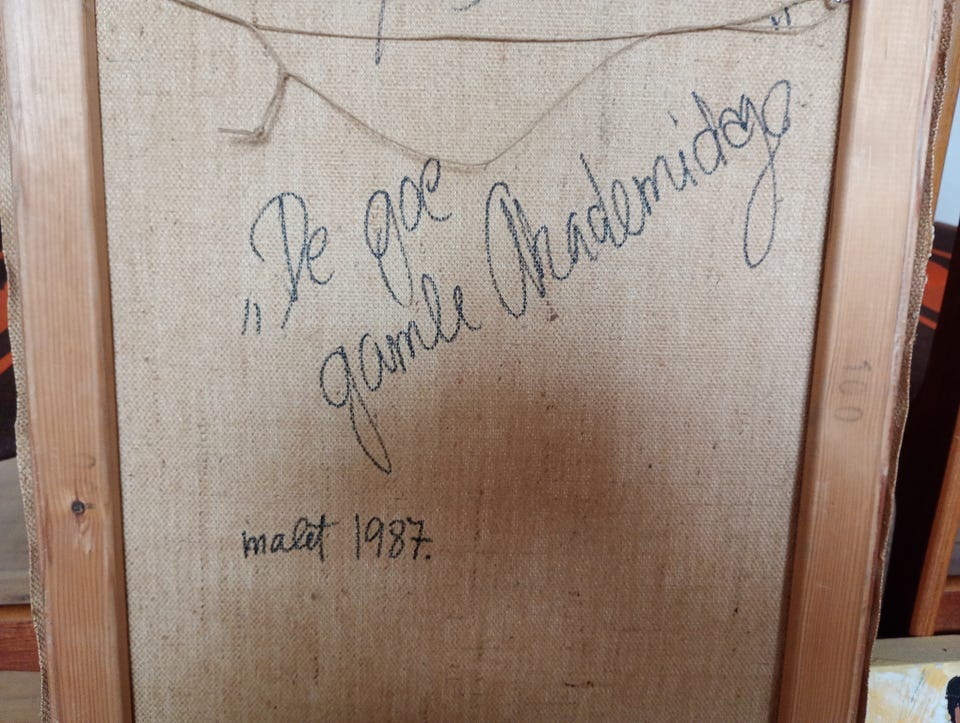 „De goe
gamle Akademidage"
malet 1987.
100